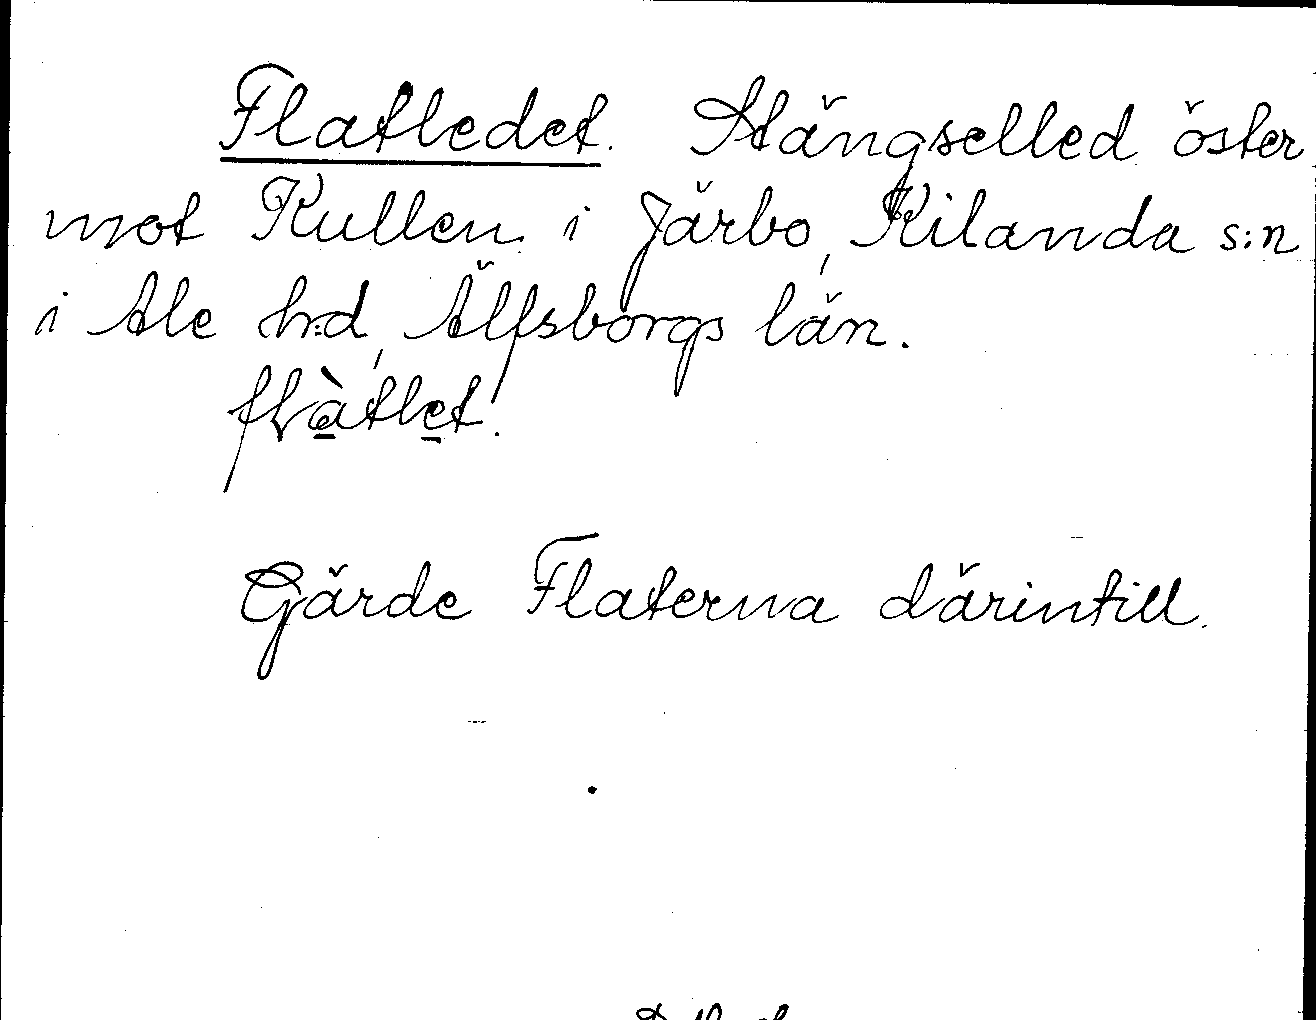 Flatledet. Stängselled öster
mot Kullen i Järbo, Kilanda s:n
i Ale h:d, Älfsborgs län.
flàtlet.
Gärde Flaterna därintill.